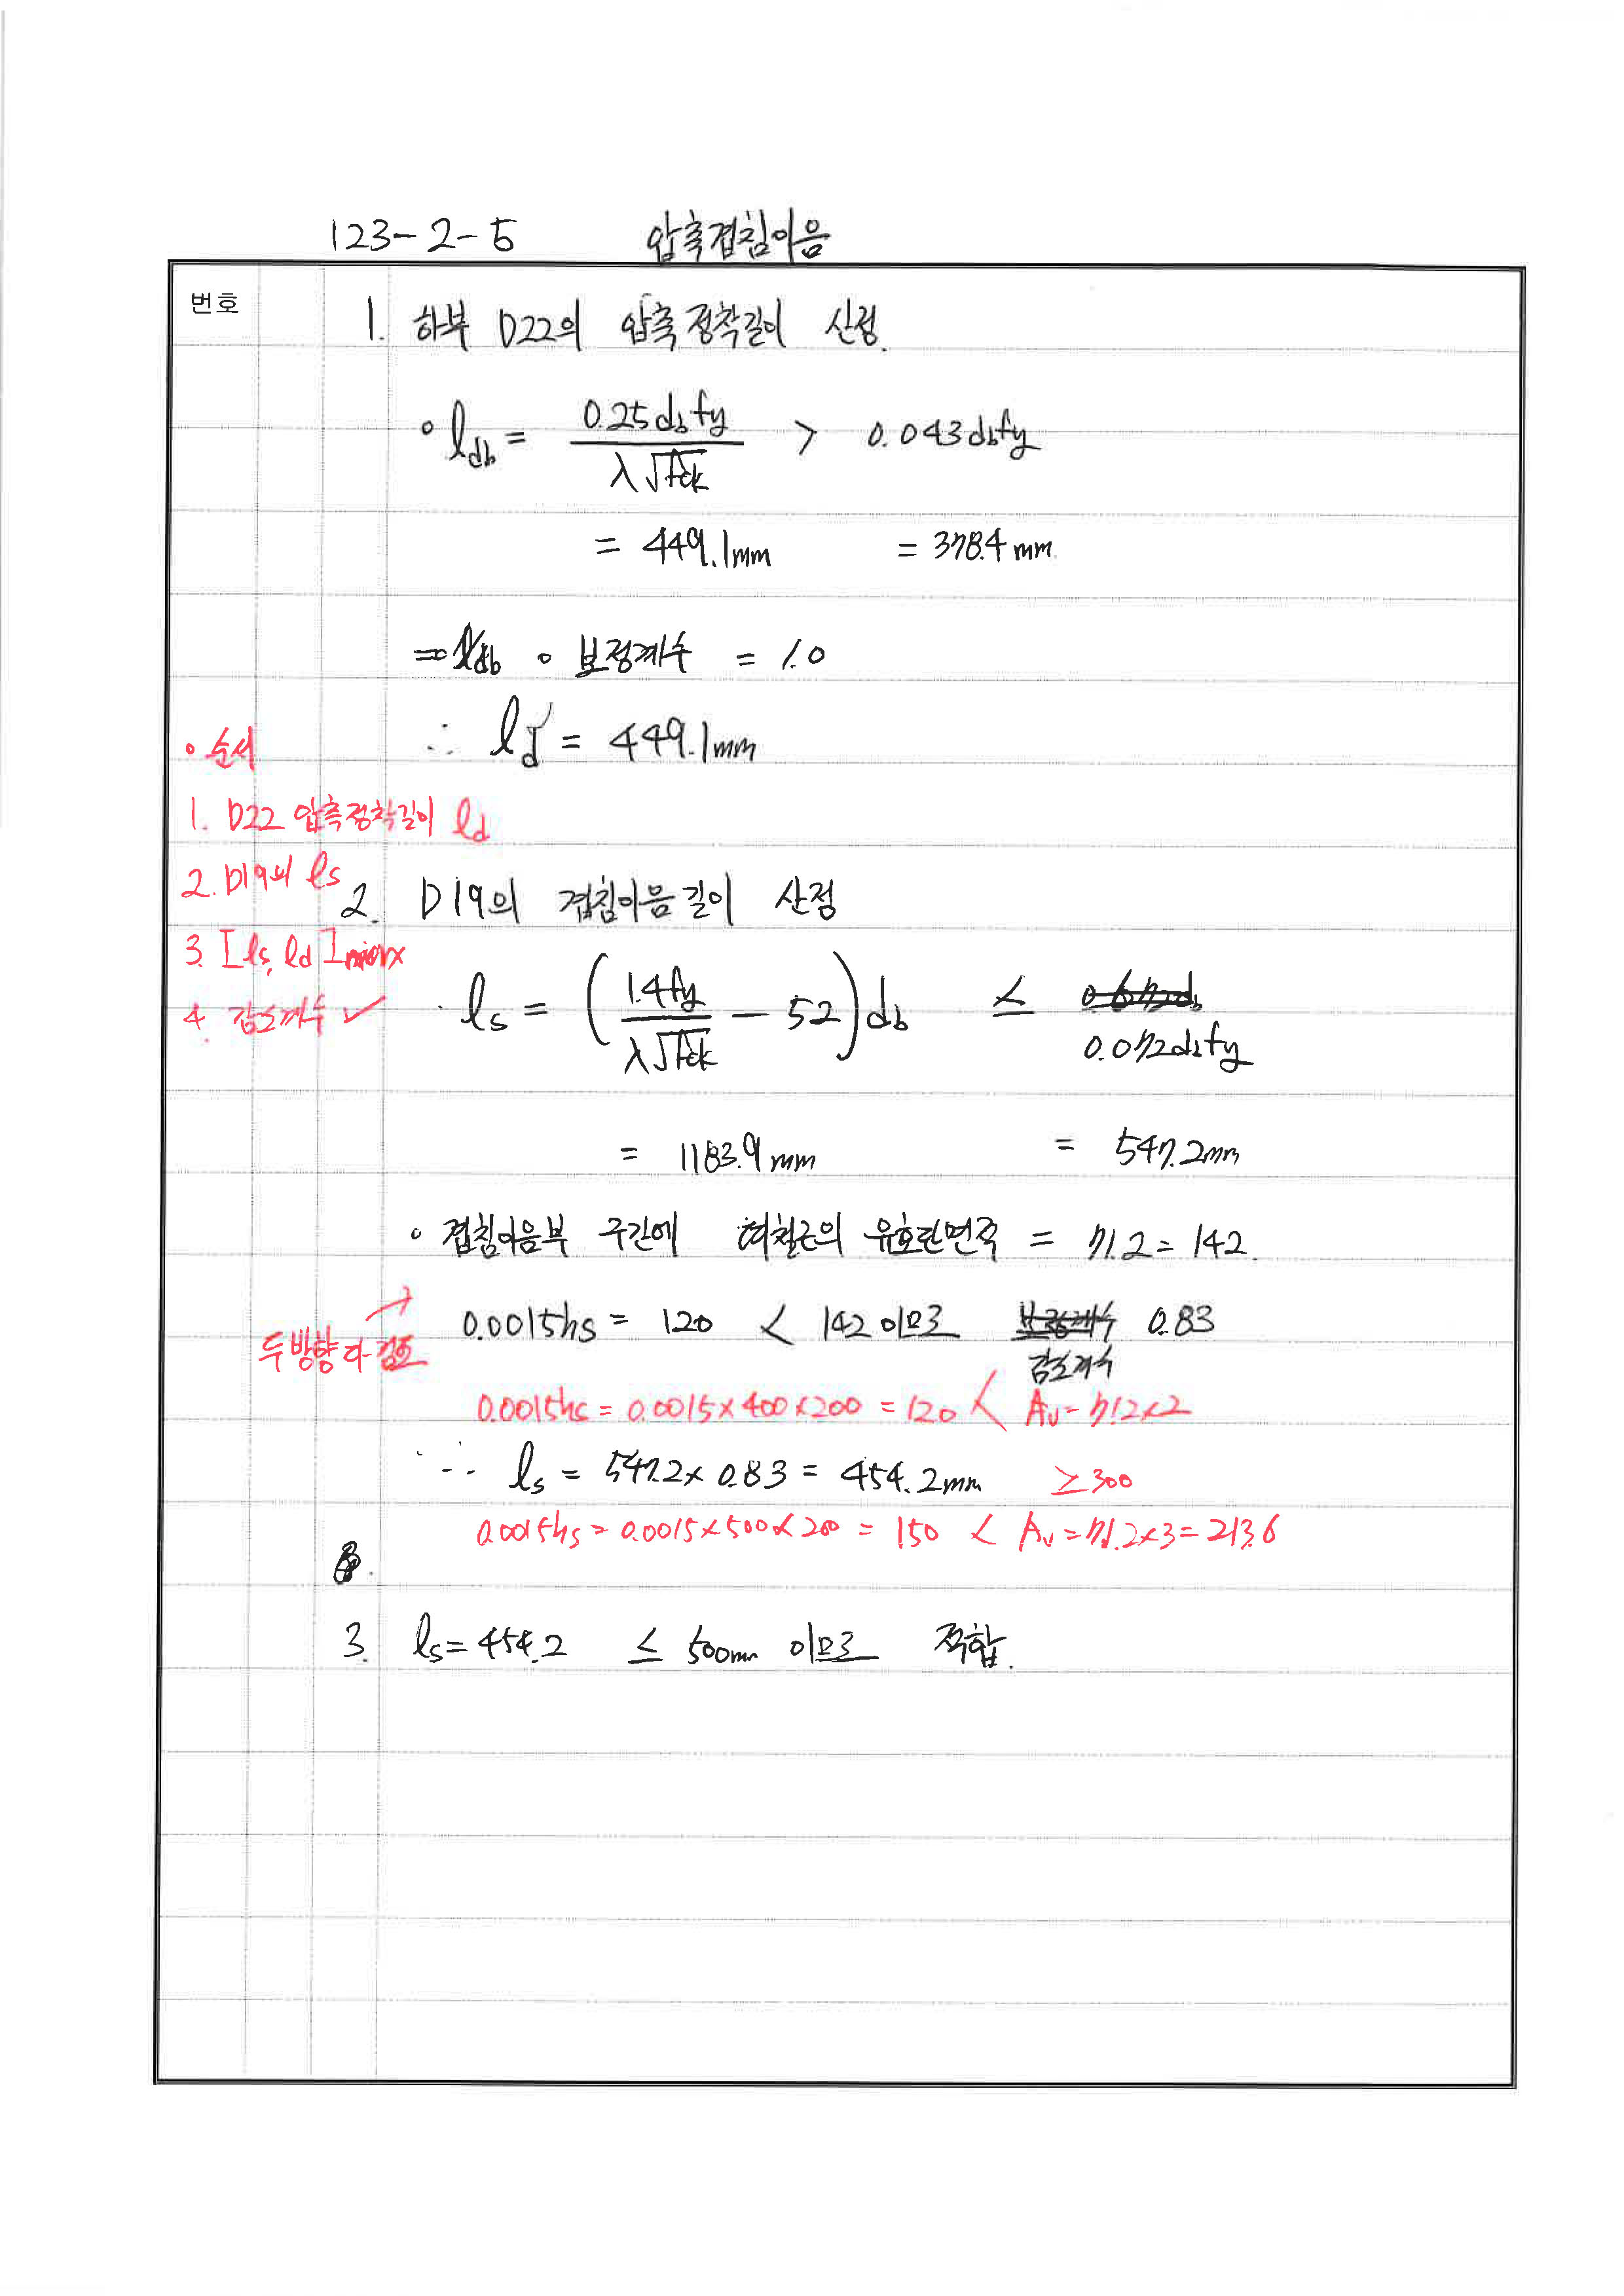 123-2-5 압축겹침이음
번호
1. 하부 D22의 압축정착길이 산정.
∘ ldb = 0.25dbfy / λ√fck > 0.043dbfy
= 449.1mm = 378.4mm
∘ 보정계수 = 1.0
∴ ld = 449.1mm
∘ 순서
1. D22 압축정착길이 ld
2. D19의 ls
3. [ls, ld]max
4. 감소계수 ✓
2. D19의 겹침이음길이 산정
· ls = (1.4fy / λ√fck − 52)db ≤ 0.072dbfy
= 1183.9mm = 547.2mm
∘ 겹침이음부 구간에 띠철근의 유효단면적 = 71.2 = 142
두방향 다 검토
0.0015hs = 120 < 142 이므로 감소계수 0.83
0.0015hs = 0.0015×400×200 = 120 < Av = 71.2×2
∴ ls = 547.2 × 0.83 = 454.2mm ≥300
0.0015hs = 0.0015×500×200 = 150 < Av = 71.2×3 = 213.6
3. ls = 454.2 ≤ 500mm 이므로 적합.